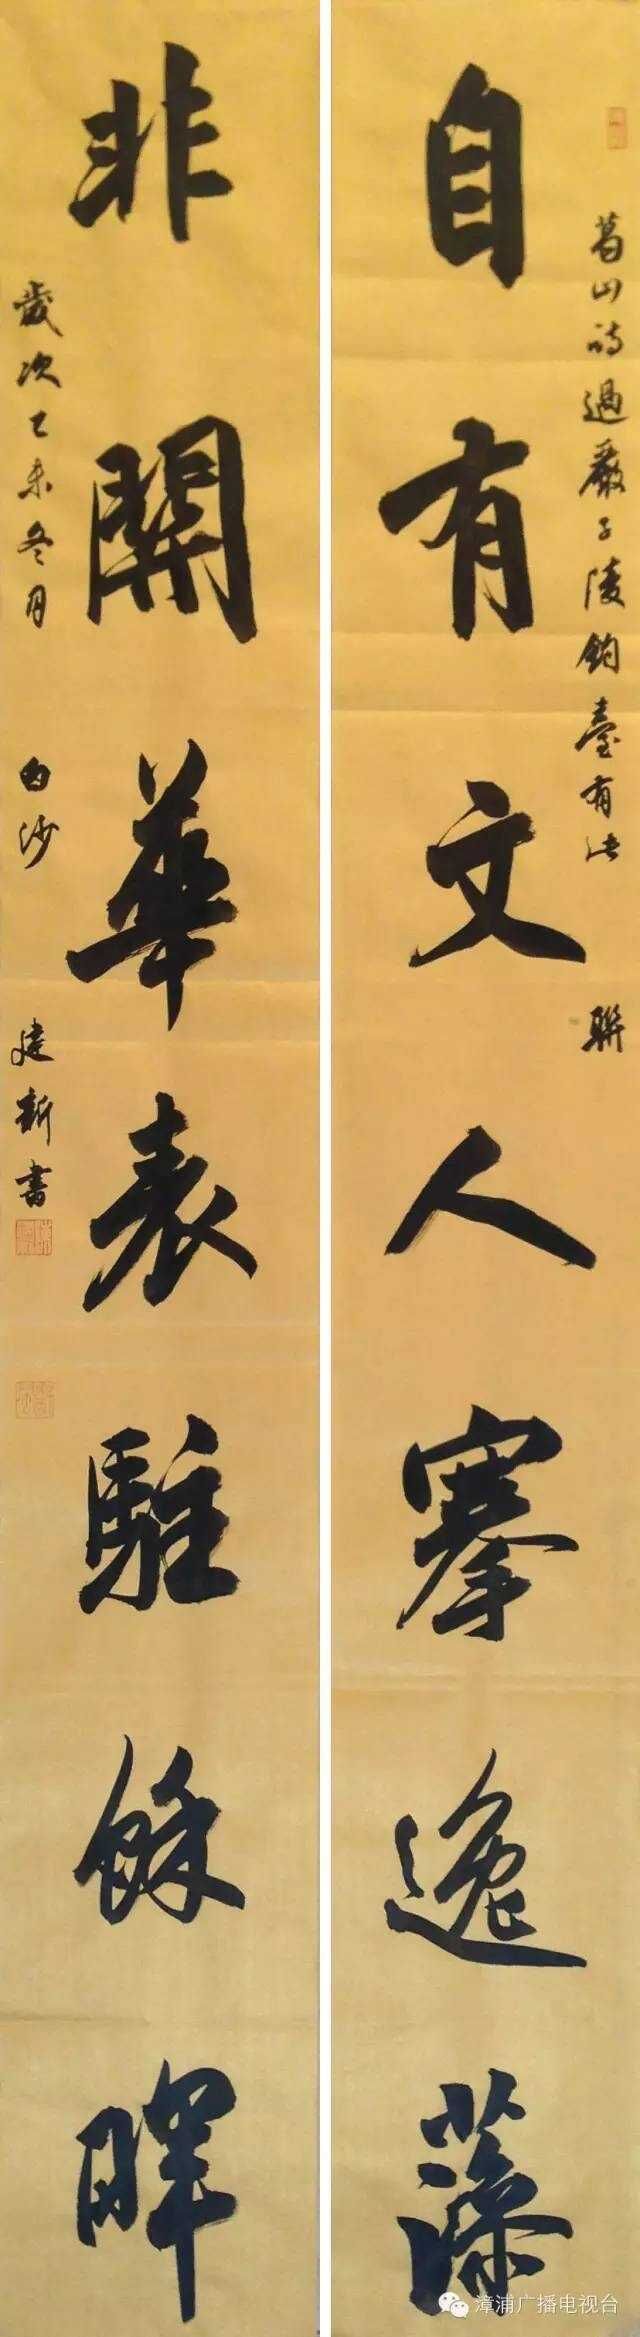 葛山詩過嚴子陵釣臺有 聯
自有文人搴逸藻
非關華表駐餘暉
歲次乙未冬月 白沙 建新書
漳浦广播电视台